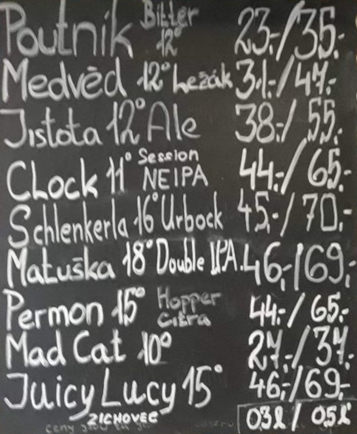 Poutník Bitter 12° 23.-/35.-
Medvěd 12° Ležák 31.-/47.-
Jistota 12° Ale 38.-/55.-
CLock 11° Session NEIPA 44.-/65.-
Schlenkerla 16° Urbock 45.-/70.-
Matuška 18° Double IPA. 46,-/69,-
Permon 15° Hopper Citra 44.-/65.-
Mad Cat 10° 27.-/37.-
Juicy Lucy 15° 46,-/69,-
ZICHOVEC 0,3l / 0,5l